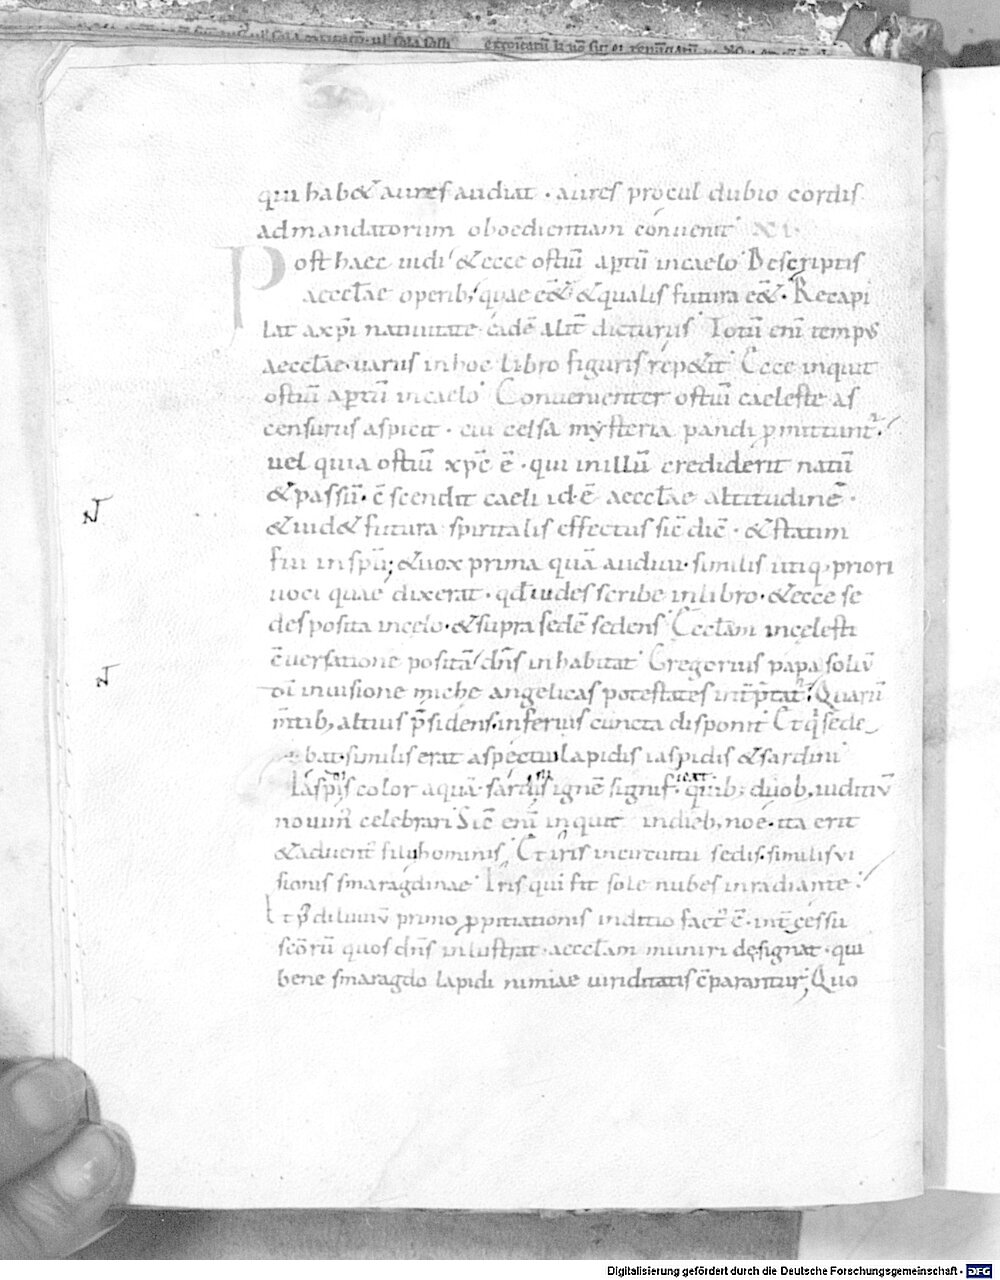 qui hab& aures audiat · aures procul dubio cordis
ad mandatorum oboedientiam conuenit XI·
Post haec uidi & ecce ostiū aꝑtū in caelo Descriptis
aeccl̄ae operib; quae ēē & qualis futura ēē· Recapi
lat a xp̄i natiuitate eadē alit̄ dicturus Totū eni temp͛
aeccl̄ae uariis in hoc libro figuris rep&it Ecce inquit
ostiū aꝑtū in caelo Conuenienter ostiū caeleste as
censurus aspicit · cui celsa mysteria pandi ꝓmittunt᷑
uel quia ostiū xp̄c ē · qui in illū crediderit natū
& passū· c̄scendit caeli id ē aeccl̄ae altitudinē ·
& uid& futura spiritalis effectus sic̄ dic̄ · & statim
fui in spū; & uox prima quā audiui· similis utiq· priori
uoci quae dixerat · qđ uides scribe in libro · & ecce se
des posita in cęlo · & supra sedē sedens Eccl̄am in cęlesti
c̄uersatione positā dn̄s inhabitat Gregorius papa soliū
in uisione miche angelicas potestates int̄p̄tat᷑· Quarū
m̄tib; altius p̄sidens· inferius cuncta disponit Et q̇ sede
bat· similis erat aspectui lapidis iaspidis & sardini
Iaspis color aquā· sardis ignē signif· icat quib; duob; iuditiū
nouim᷒ celebrari Sic̄ eni inquit in dieb; noe· ita erit
& aduent᷒ filii hominis, Et iris in circuitu sedis· similis ui
sionis smaragdinae Iris qui fit sole nubes inradiante·
et p̄ diluuiū primo ꝓpitiationis inditio fact᷒ ē· int̄cessu
sc̄orū quos dn̄s inlustrat· aeccl̄am muniri designat · qui
bene smaragdo lapidi nimiae uiriditatis c̄parantur; Quo
Digitalisierung gefördert durch die Deutsche Forschungsgemeinschaft - DFG